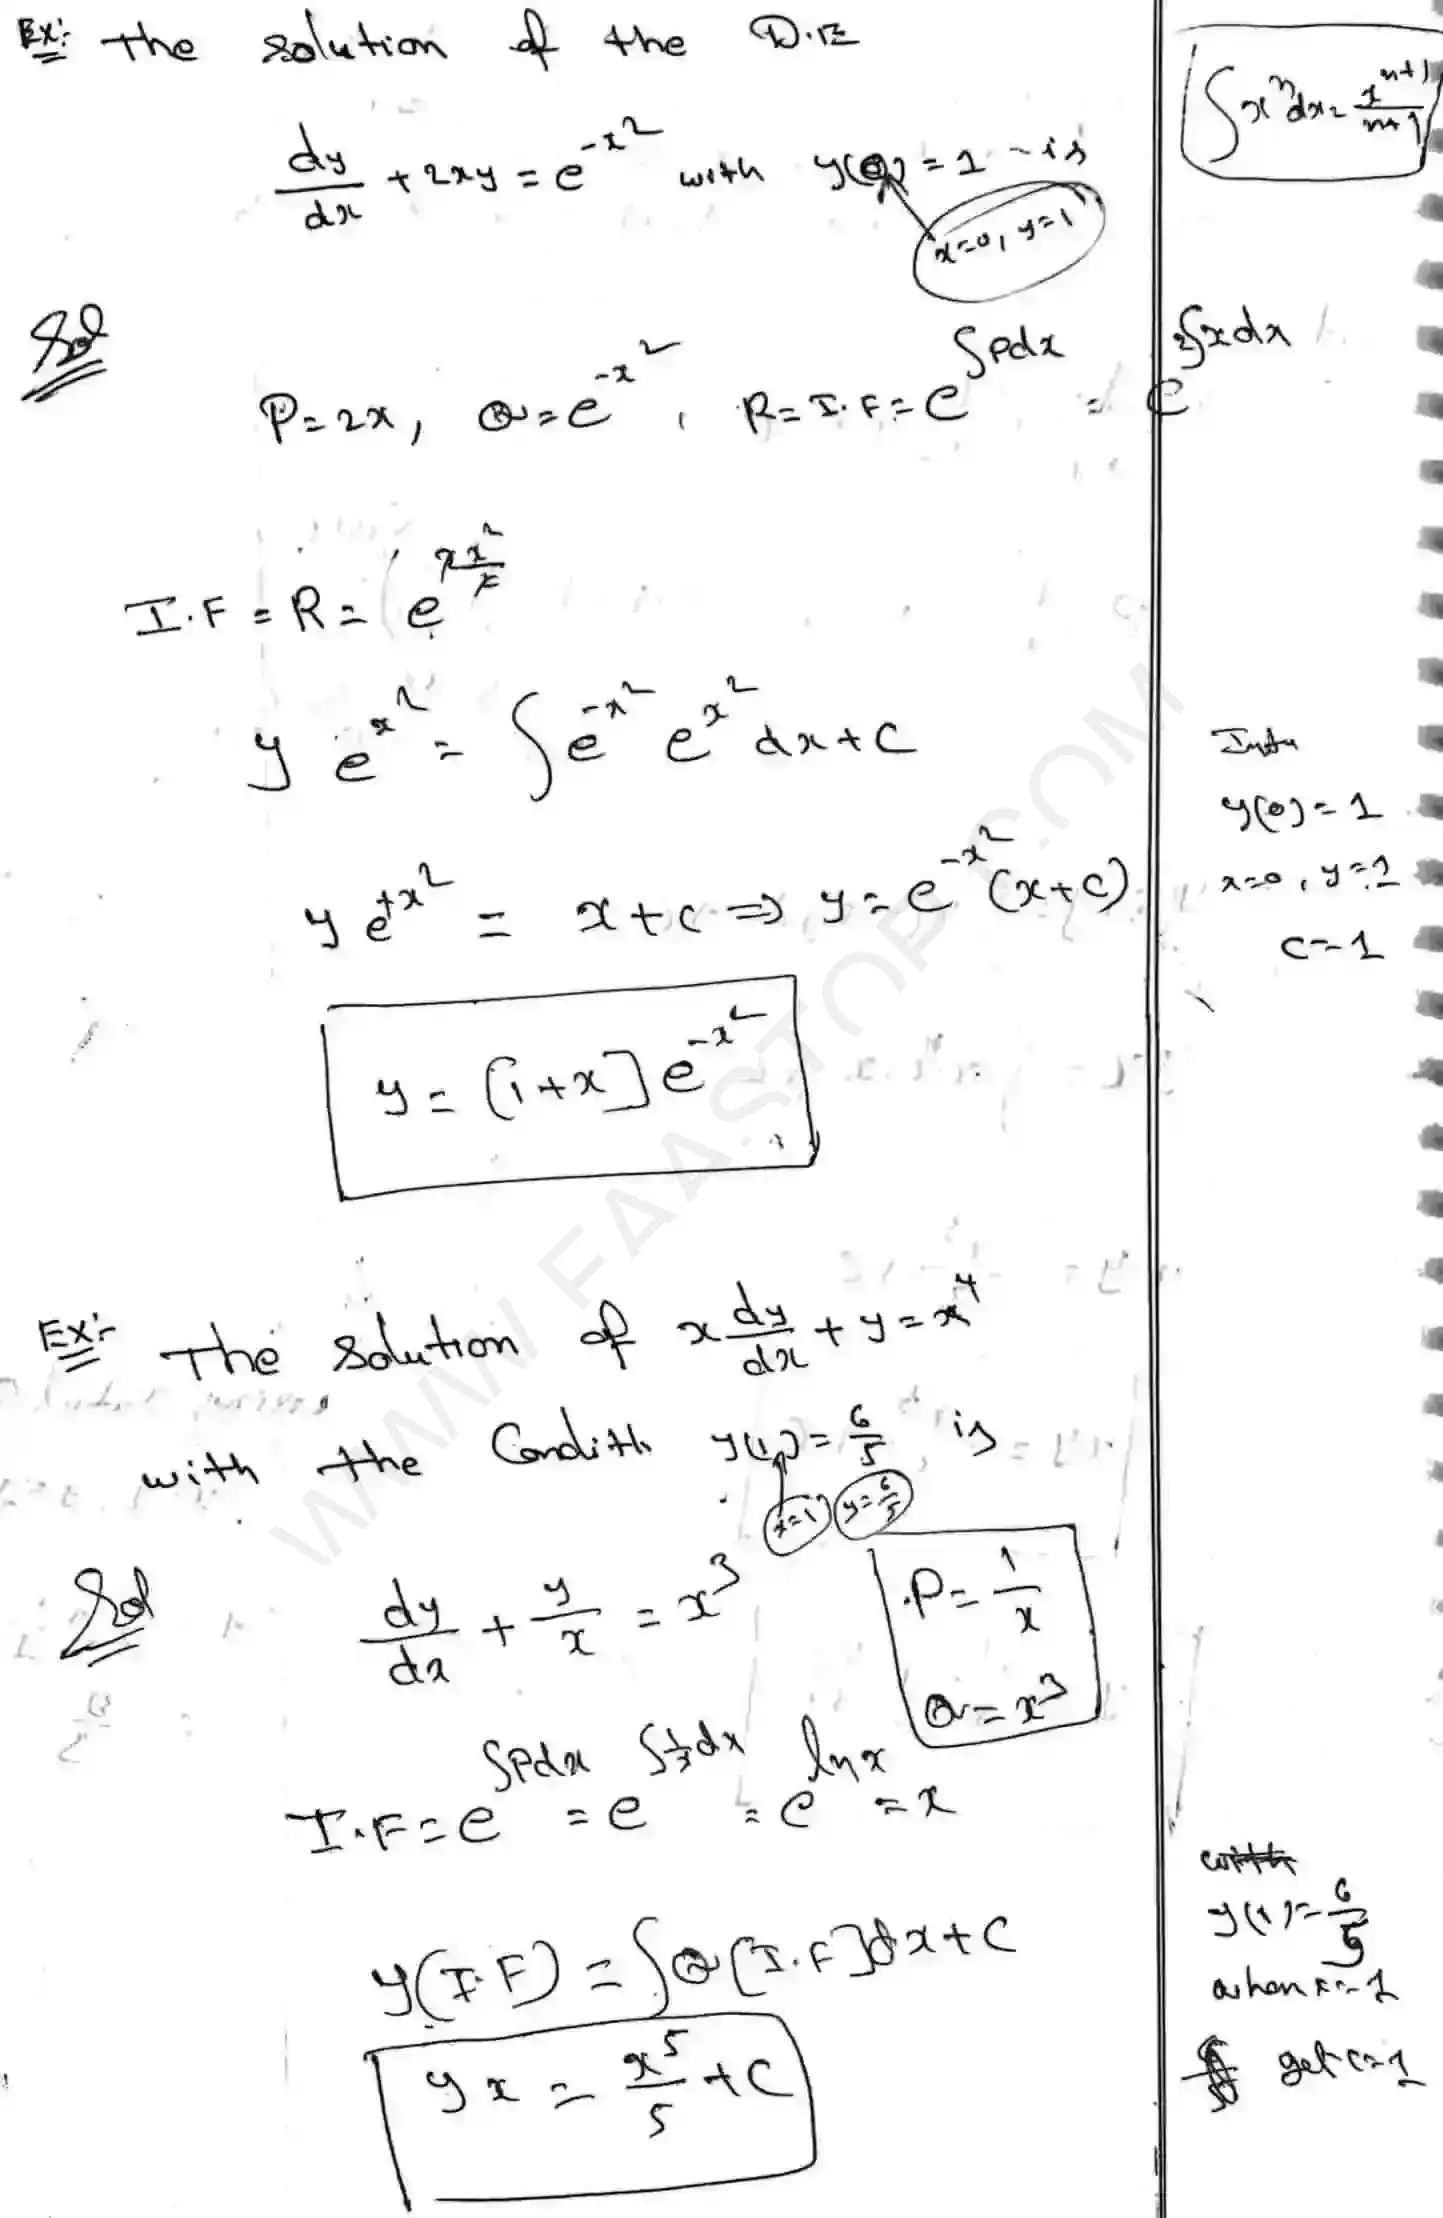 Ex:- The solution of the D.E
dy/dx + 2xy = e^{-x^2} with y(0) = 1 is
x=0, y=1
∫x^n dx = x^{n+1}/n+1
Sol
P = 2x, Q = e^{-x^2}, R = I.F = e^{∫Pdx} = e^{2∫xdx}
I.F = R = e^{2x^2/2}
y e^{x^2} = ∫e^{-x^2} e^{x^2} dx + C
y e^{+x^2} = x + c ⇒ y = e^{-x^2} (x + c)
y(0) = 1
x=0, y=1
c=1
y = (1+x] e^{-x^2}
Ex:- The solution of x dy/dx + y = x^4
with the y(1) = 6/5 is
x=1 y=6/5
Sol
dy/dx + y/x = x^3
P = 1/x
Q = x^3
I.F = e^{∫Pdx} = e^{∫1/x dx} = e^{ln x} = x
y(I.F) = ∫Q[I.F]dx + C
yx = x^5/5 + C
with
y(1) = 6/5
when x=1
get c=1
WWW.FAASTOP.COM